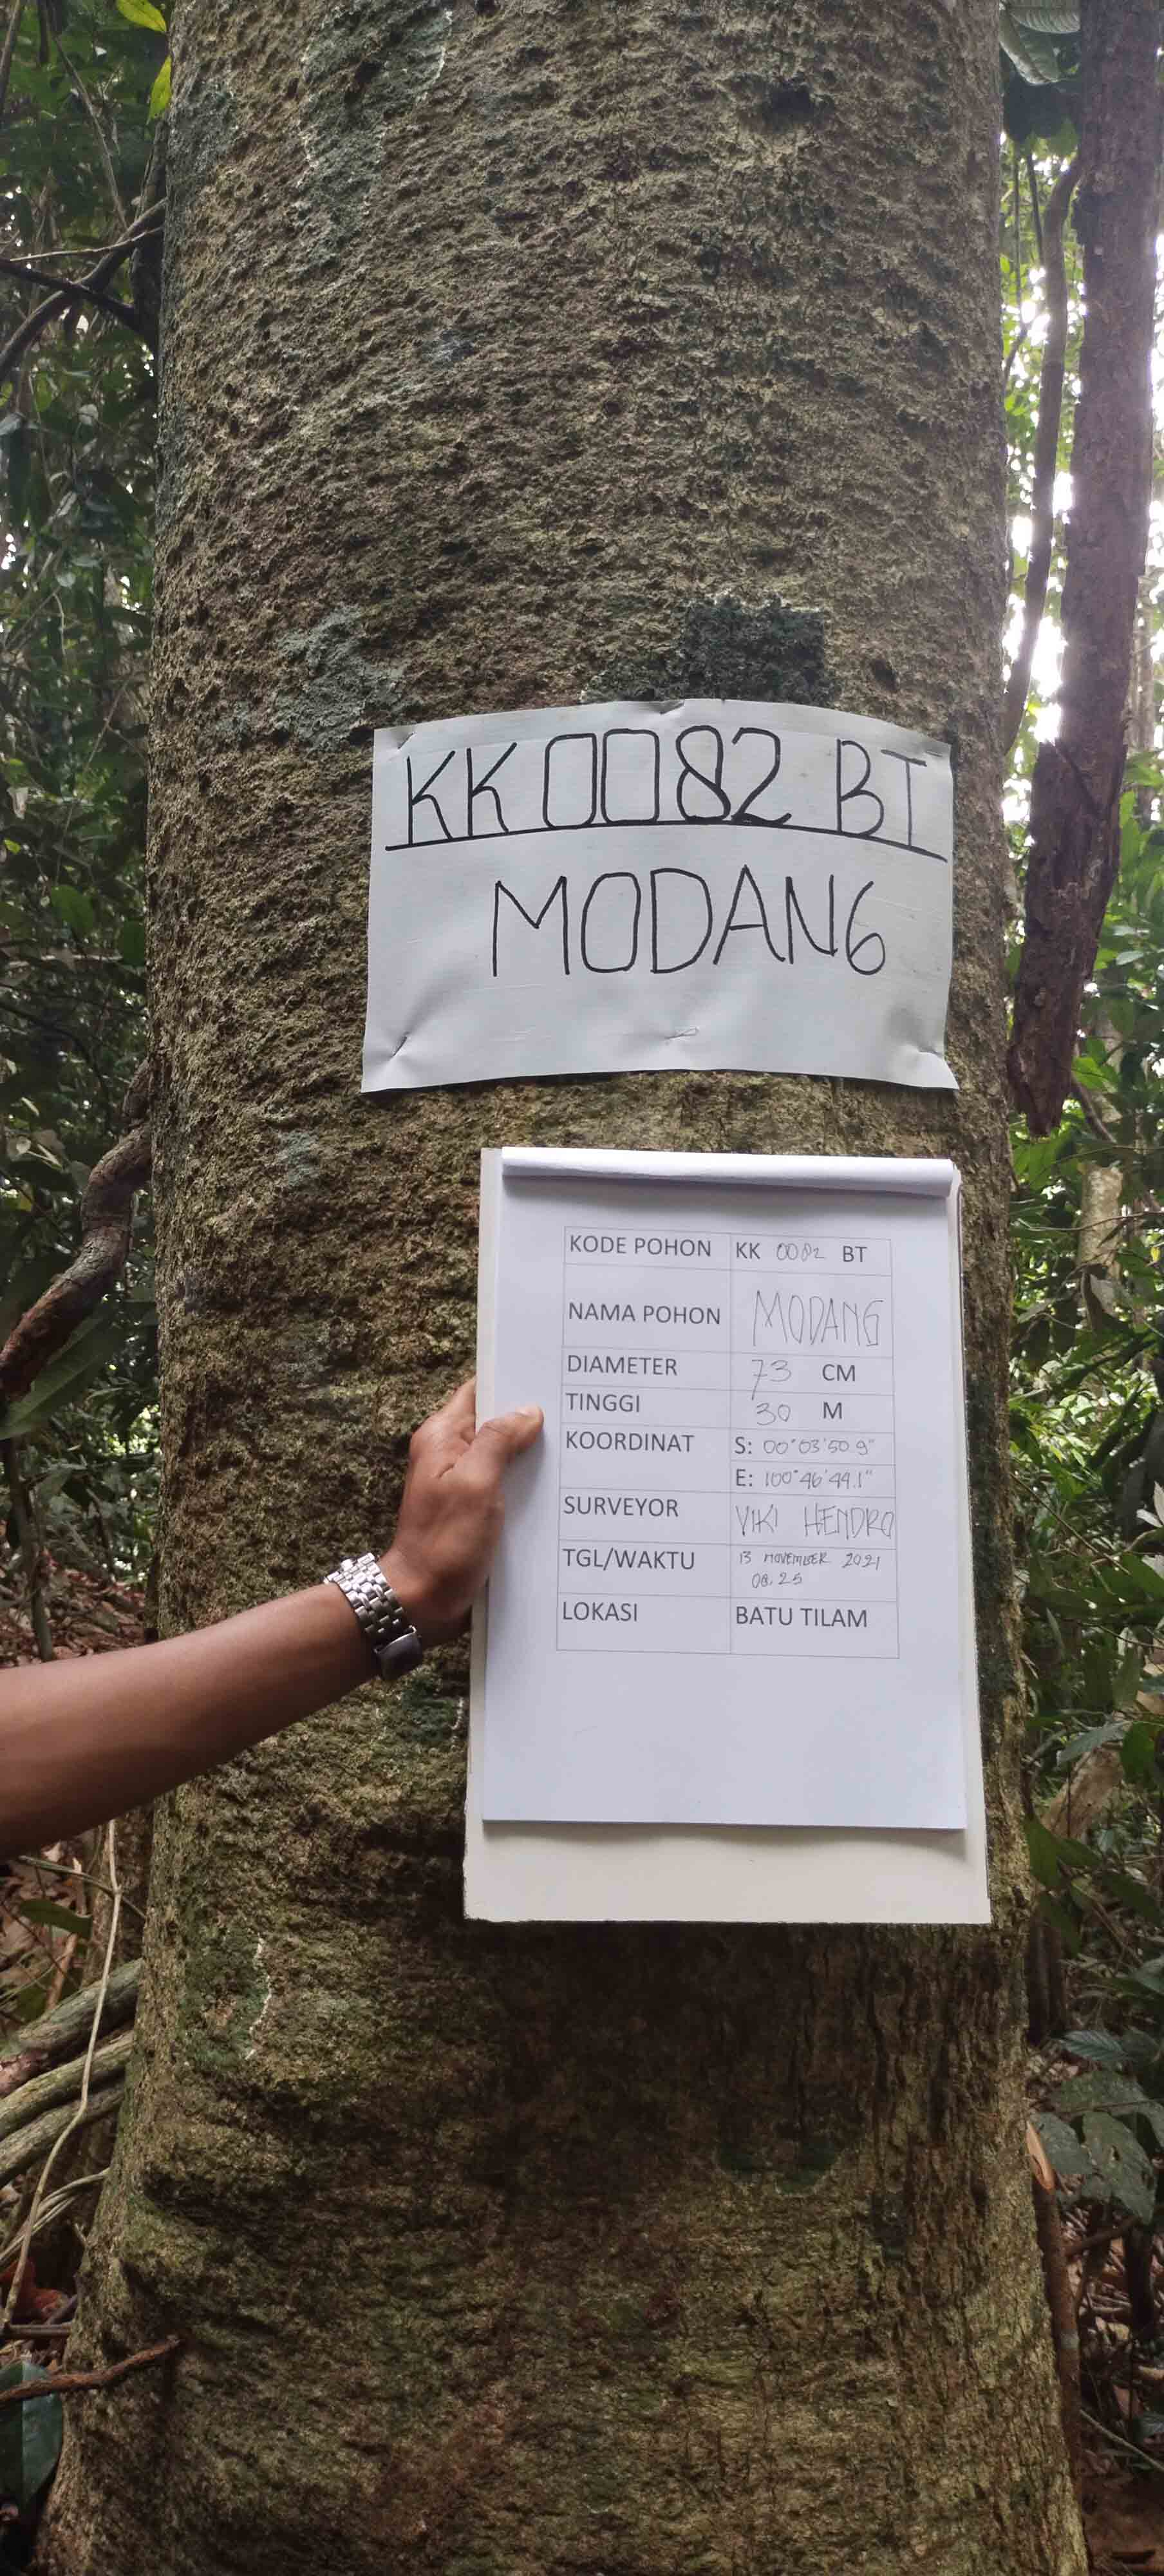 KK0082 BT
MODANG
KODE POHON KK 0082 BT
NAMA POHON MODANG
DIAMETER 73 CM
TINGGI 30 M
KOORDINAT S: 00°03'50.9"
E: 100°46'44.1"
SURVEYOR VIKI HENDRO
TGL/WAKTU 13 NOVEMBER 2021
08.25
LOKASI BATU TILAM